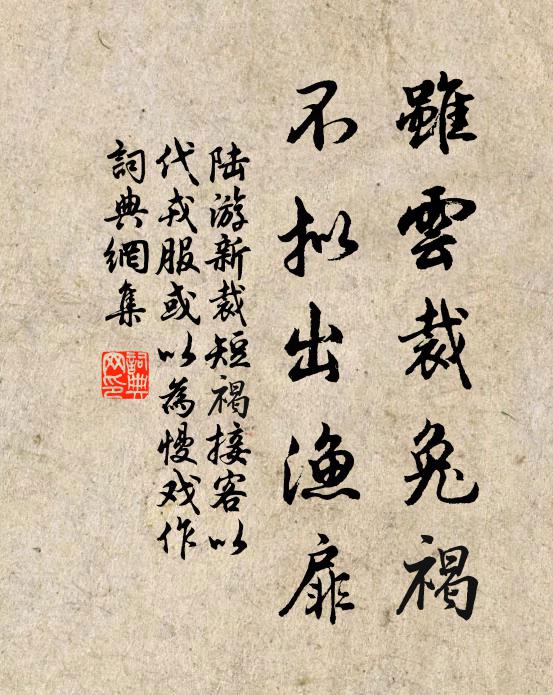 雖雲裁兔褐
不拟出漁扉
陆游新裁短褐接客以
代戎服或以為慢戏作
詞典網集
詞典网印